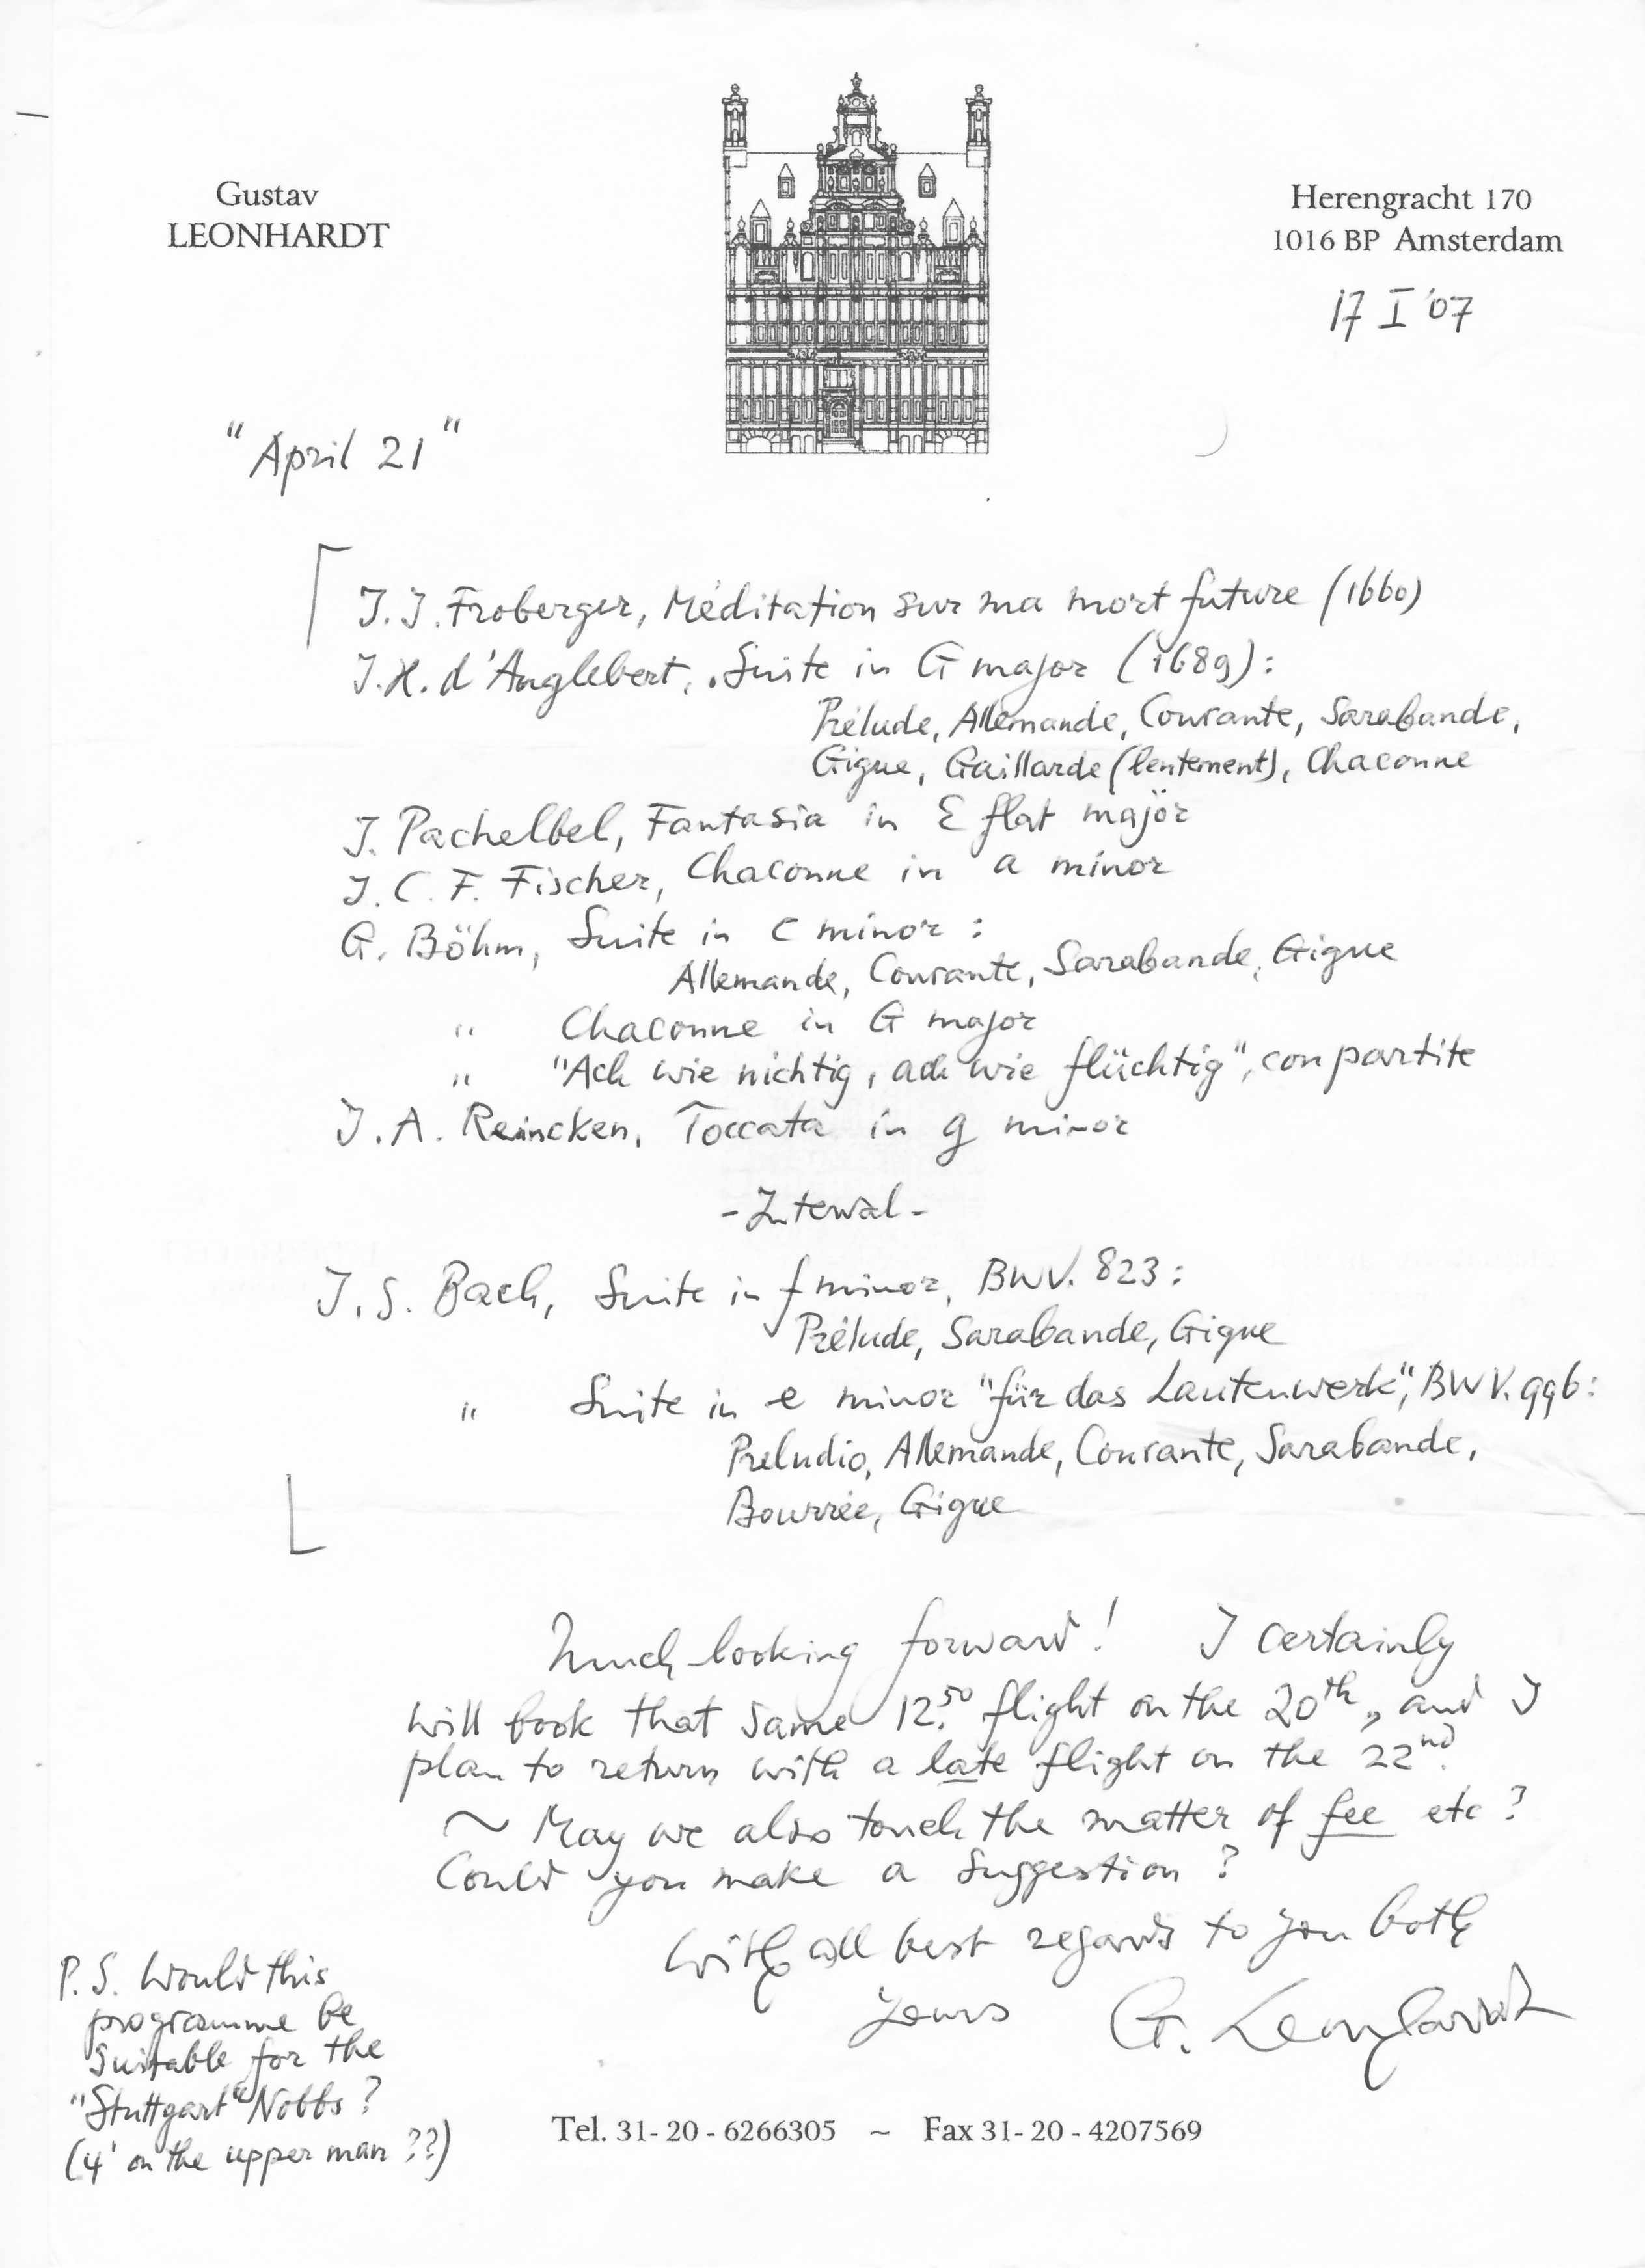 Gustav
LEONHARDT
Herengracht 170
1016 BP Amsterdam
17 I '07
"April 21"
J. J. Froberger, Méditation sur ma mort future (1660)
J. H. d'Anglebert, Suite in G major (1689):
Prélude, Allemande, Courante, Sarabande,
Gigue, Gaillarde (lentement), Chaconne
J. Pachelbel, Fantasia in E flat major
J. C. F. Fischer, Chaconne in a minor
G. Böhm, Suite in c minor:
Allemande, Courante, Sarabande, Gigue
" Chaconne in G major
" "Ach wie nichtig, ach wie flüchtig", con partite
J. A. Reincken, Toccata in g minor
- Interval -
J. S. Bach, Suite in f minor, BWV. 823:
Prélude, Sarabande, Gigue
" Suite in e minor "für das Lautenwerk", BWV. 996:
Preludio, Allemande, Courante, Sarabande,
Bourrée, Gigue
Much looking forward! I certainly
will book that same 12.50 flight on the 20th, and I
plan to return with a late flight on the 22nd.
~ May we also touch the matter of fee etc?
Could you make a suggestion?
With all best regards to you both
yours G. Leonhardt
P.S. Would this
programme be
suitable for the
"Stuttgart" Nobbs?
(4' on the upper man??)
Tel. 31-20-6266305 ~ Fax 31-20-4207569